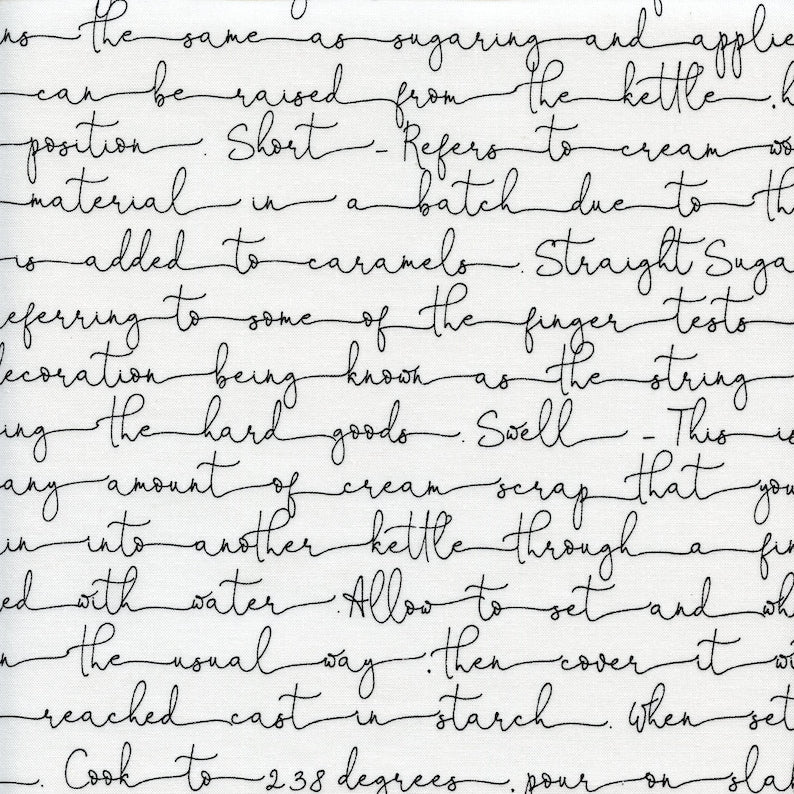 ns the same as sugaring and applie
can be raised from the kettle .h
position . Short - Refers to cream wo
material in a batch due to th
is added to caramels . Straight Suga
eferring to some of the finger tests
ecoration being known as the string
ing the hard goods . Swell - This is
any amount of cream scrap that you
in into another kettle through a fin
ed with water .Allow to set and wh
n the usual way .then cover it wi
reached cast in starch . When set
. Cook to 238 degrees .pour on slab